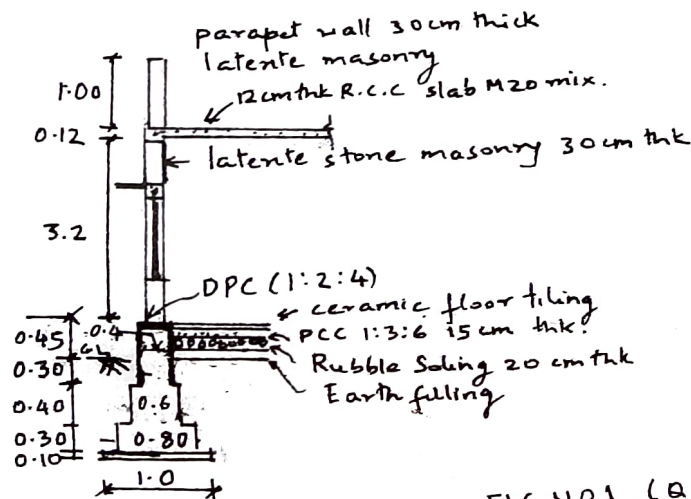 parapet wall 30cm thick
latente masonry
12cm thk R.C.C slab M20 mix.
1.00
0.12
latente stone masonry 30cm thk
3.2
DPC (1:2:4)
ceramic floor tiling
PCC 1:3:6 15cm thk.
Rubble Soling 20 cm thk
Earth filling
0.45
0.4
GL
0.30
0.40
0.6
0.30
0.80
0.10
1.0